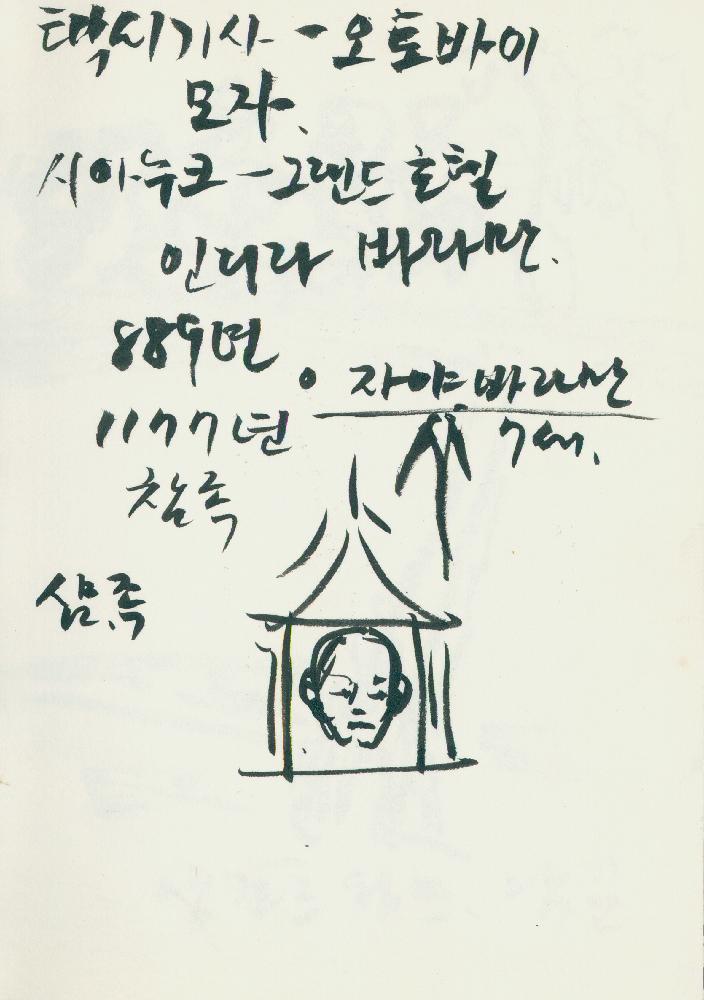 택시기사 - 오토바이
모자.
시아누크 - 그랜드 호텔
인디라 바라만.
889년
• 자야바라만
1177년
7세.
참족
샴.족